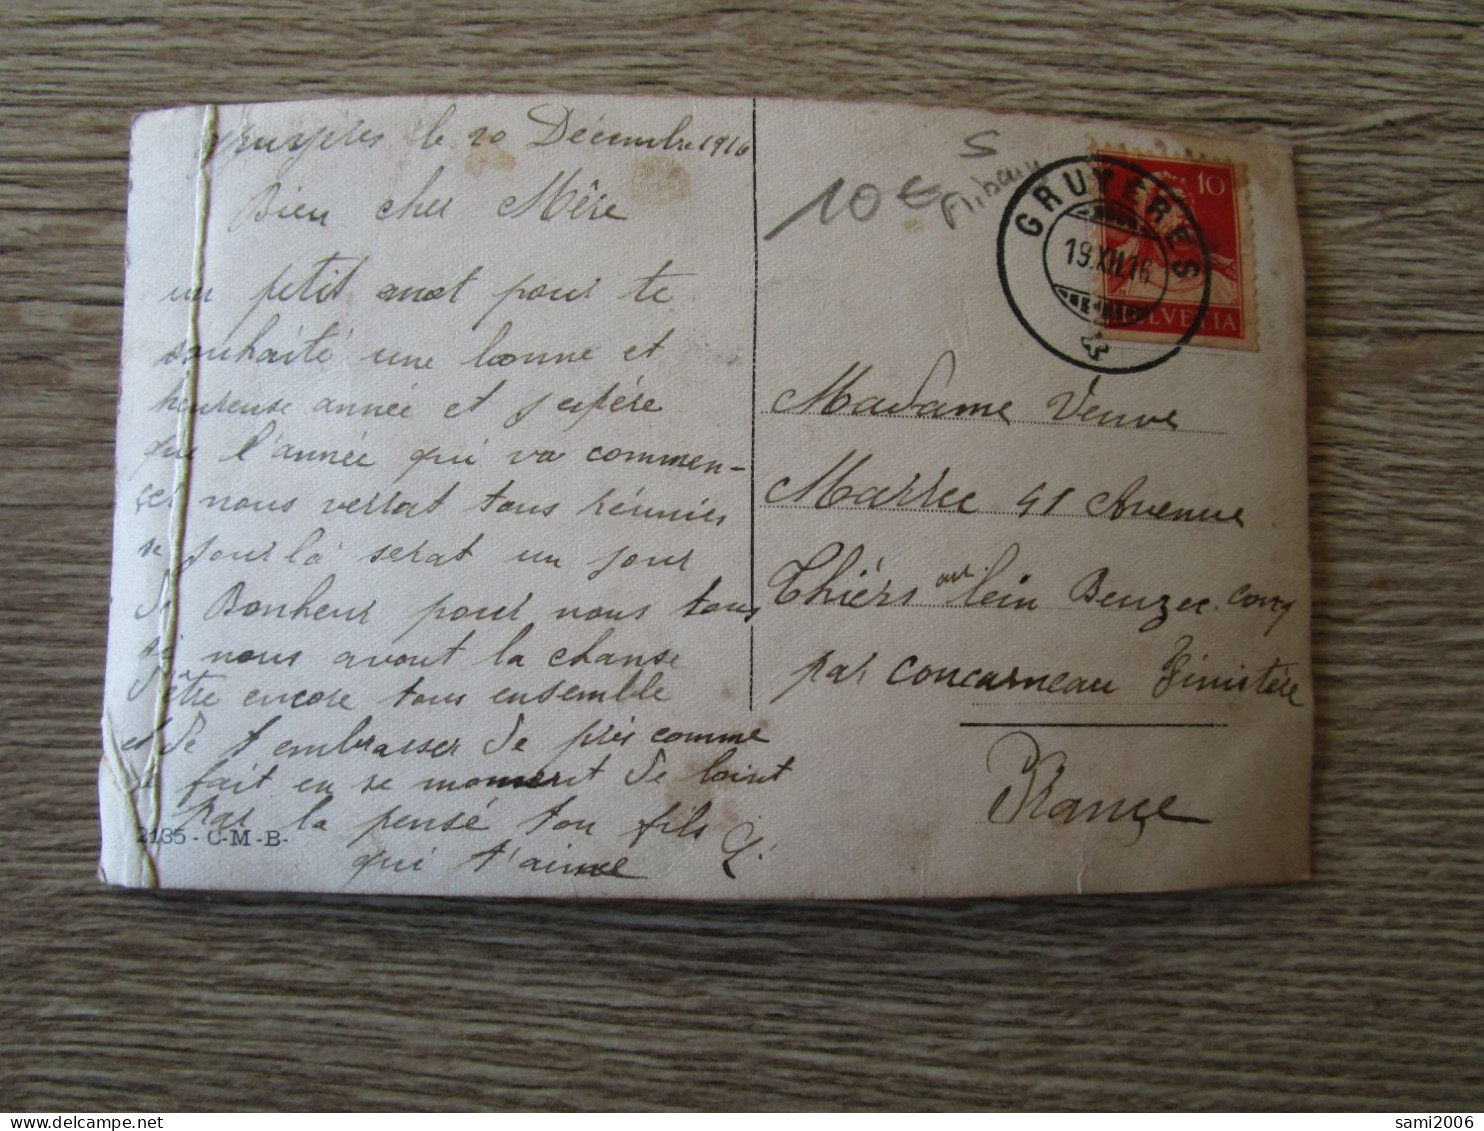 Gruyères le 20 Décembre 1916
Bien cher Mère
un petit mot pour te
souhaité une bonne et
heureuse année et j'espére
que l'année qui va commen-
cer nous verrat tous réunies
se jour là serat un jour
de Bonheur pour nous tous
si nous avont la chanse
d'être encore tous ensemble
et de t'embrasser de près comme
je fait en se moment de loint
par la pensé ton fils
qui t'aime
2185 - C-M-B-
10 €
S
GRUYERES
19.XII.16
10
HELVETIA
Madame Veuve
Marrec 41 Avenue
Thiérs lein Beuzec. Conq
par Concarneau Finistère
France
sami2006